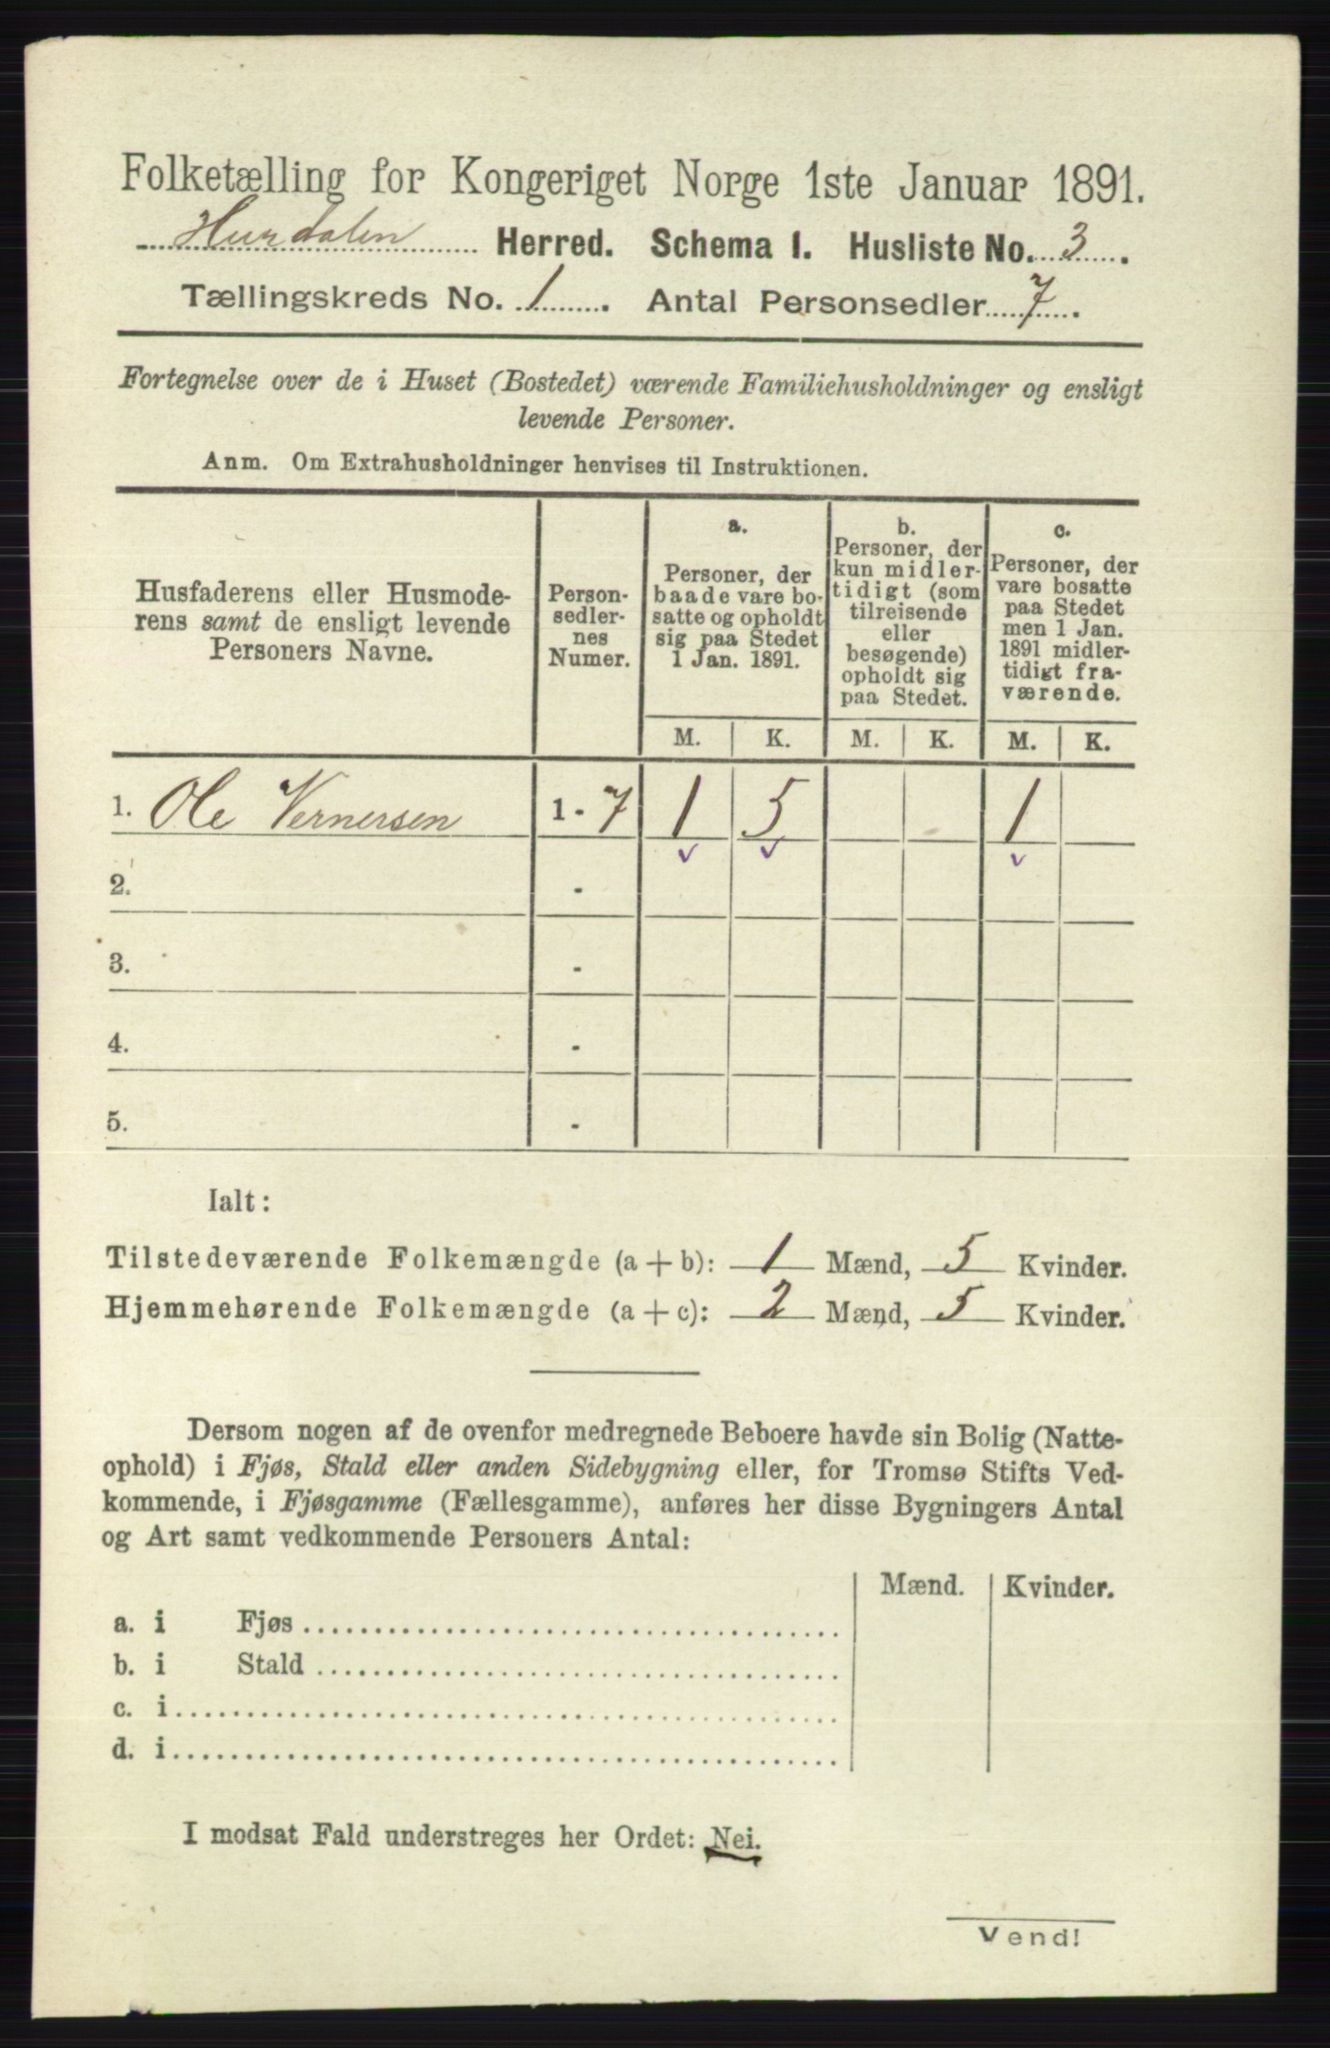 Folketælling for Kongeriget Norge 1ste Januar 1891.
Hurdalen Herred. Schema 1. Husliste No. 3.
Tællingskreds No. 1. Antal Personsedler 7.
Fortegnelse over de i Huset (Bostedet) værende Familiehusholdninger og ensligt
levende Personer.
Anm. Om Extrahusholdninger henvises til Instruktionen.
Husfaderens eller Husmode-
rens samt de ensligt levende
Personers Navne.
Person-
sedler-
nes
Numer.
a.
Personer, der
baade vare bo-
satte og opholdt
sig paa Stedet
1 Jan. 1891.
b.
Personer, der
kun midler-
tidigt (som
tilreisende
eller
besøgende)
opholdt sig
paa Stedet.
c.
Personer, der
vare bosatte
paa Stedet
men 1 Jan.
1891 midler-
tidigt fra-
værende.
M. K. M. K. M. K.
1. Ole Vernersen 1 - 7 1 5 1
2. -
3. -
4. -
5. -
Ialt:
Tilstedeværende Folkemængde (a + b): 1 Mænd, 5 Kvinder.
Hjemmehørende Folkemængde (a + c): 2 Mænd, 5 Kvinder.
Dersom nogen af de ovenfor medregnede Beboere havde sin Bolig (Natte-
ophold) i Fjøs, Stald eller anden Sidebygning eller, for Tromsø Stifts Ved-
kommende, i Fjøsgamme (Fællesgamme), anføres her disse Bygningers Antal
og Art samt vedkommende Personers Antal:
Mænd. Kvinder.
a. i Fjøs
b. i Stald
c. i
d. i
I modsat Fald understreges her Ordet: Nei.
Vend!